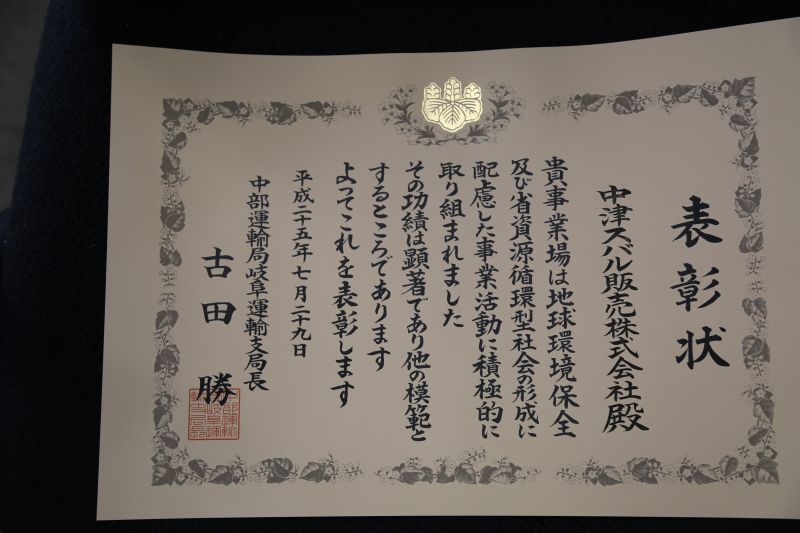 表彰状
中津スバル販売株式会社殿
貴事業場は地球環境保全
及び省資源循環型社会の形成に
配慮した事業活動に積極的に
取り組まれました
その功績は顕著であり他の模範と
するところであります
よってこれを表彰します
平成二十五年七月二十九日
中部運輸局岐阜運輸支局長
古田勝